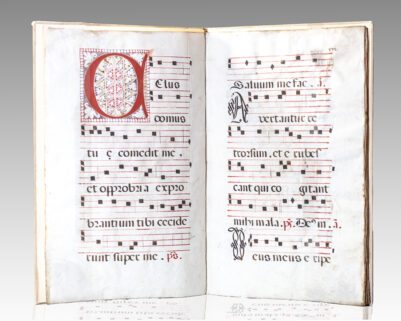 CElus
domus
tu ę comedit me .
et opprobria expro
brantium tibi cecide
runt super me . ps.
Salvum me fac . ā.
A vertantur re
trorsum, et e rubes
cant qui co gitant
mihi mala. ps. Deus m. ā.
D eus meus e ripe